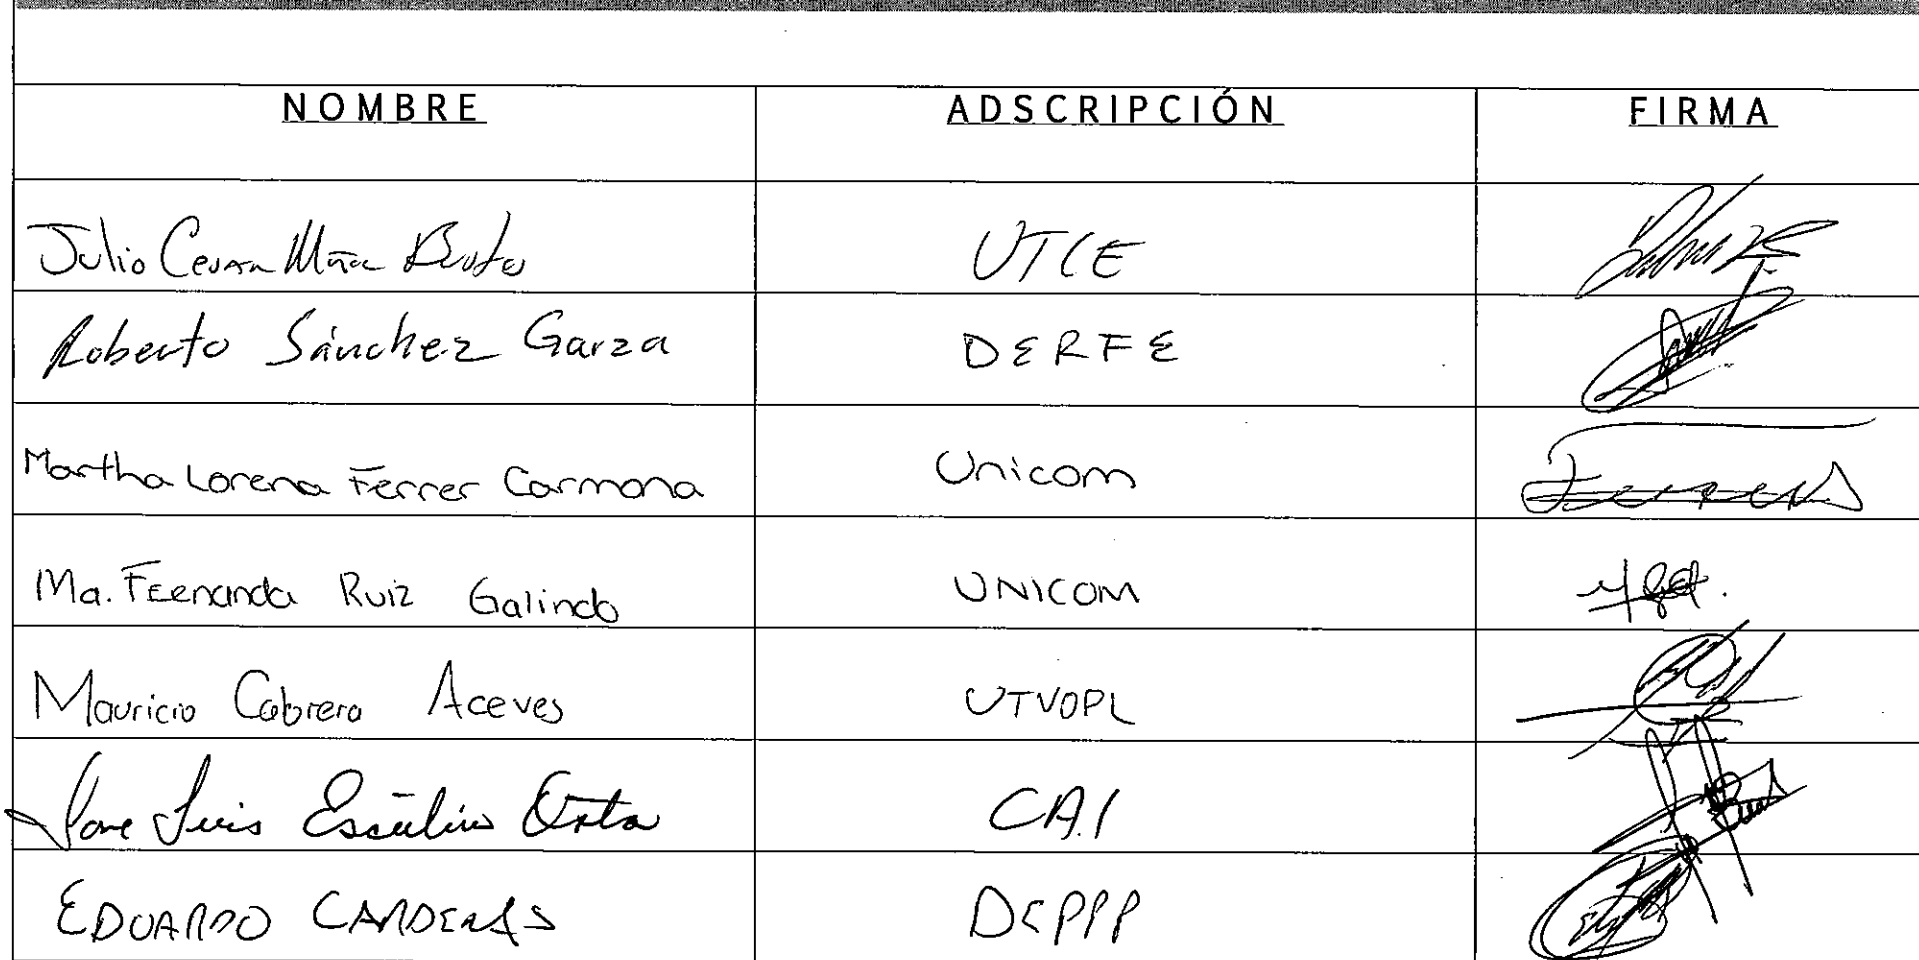 NOMBRE ADSCRIPCIÓN FIRMA
Julio Cesar UTCE
Roberto Sánchez Garza DERFE
Martha Lorena Ferrer Carmona Unicom
Ma. Fernanda Ruiz Galindo UNICOM
Mauricio Cabrera Aceves UTVOPL
Jose Luis Orta CAI
EDUARDO CARDENAS DEPPP